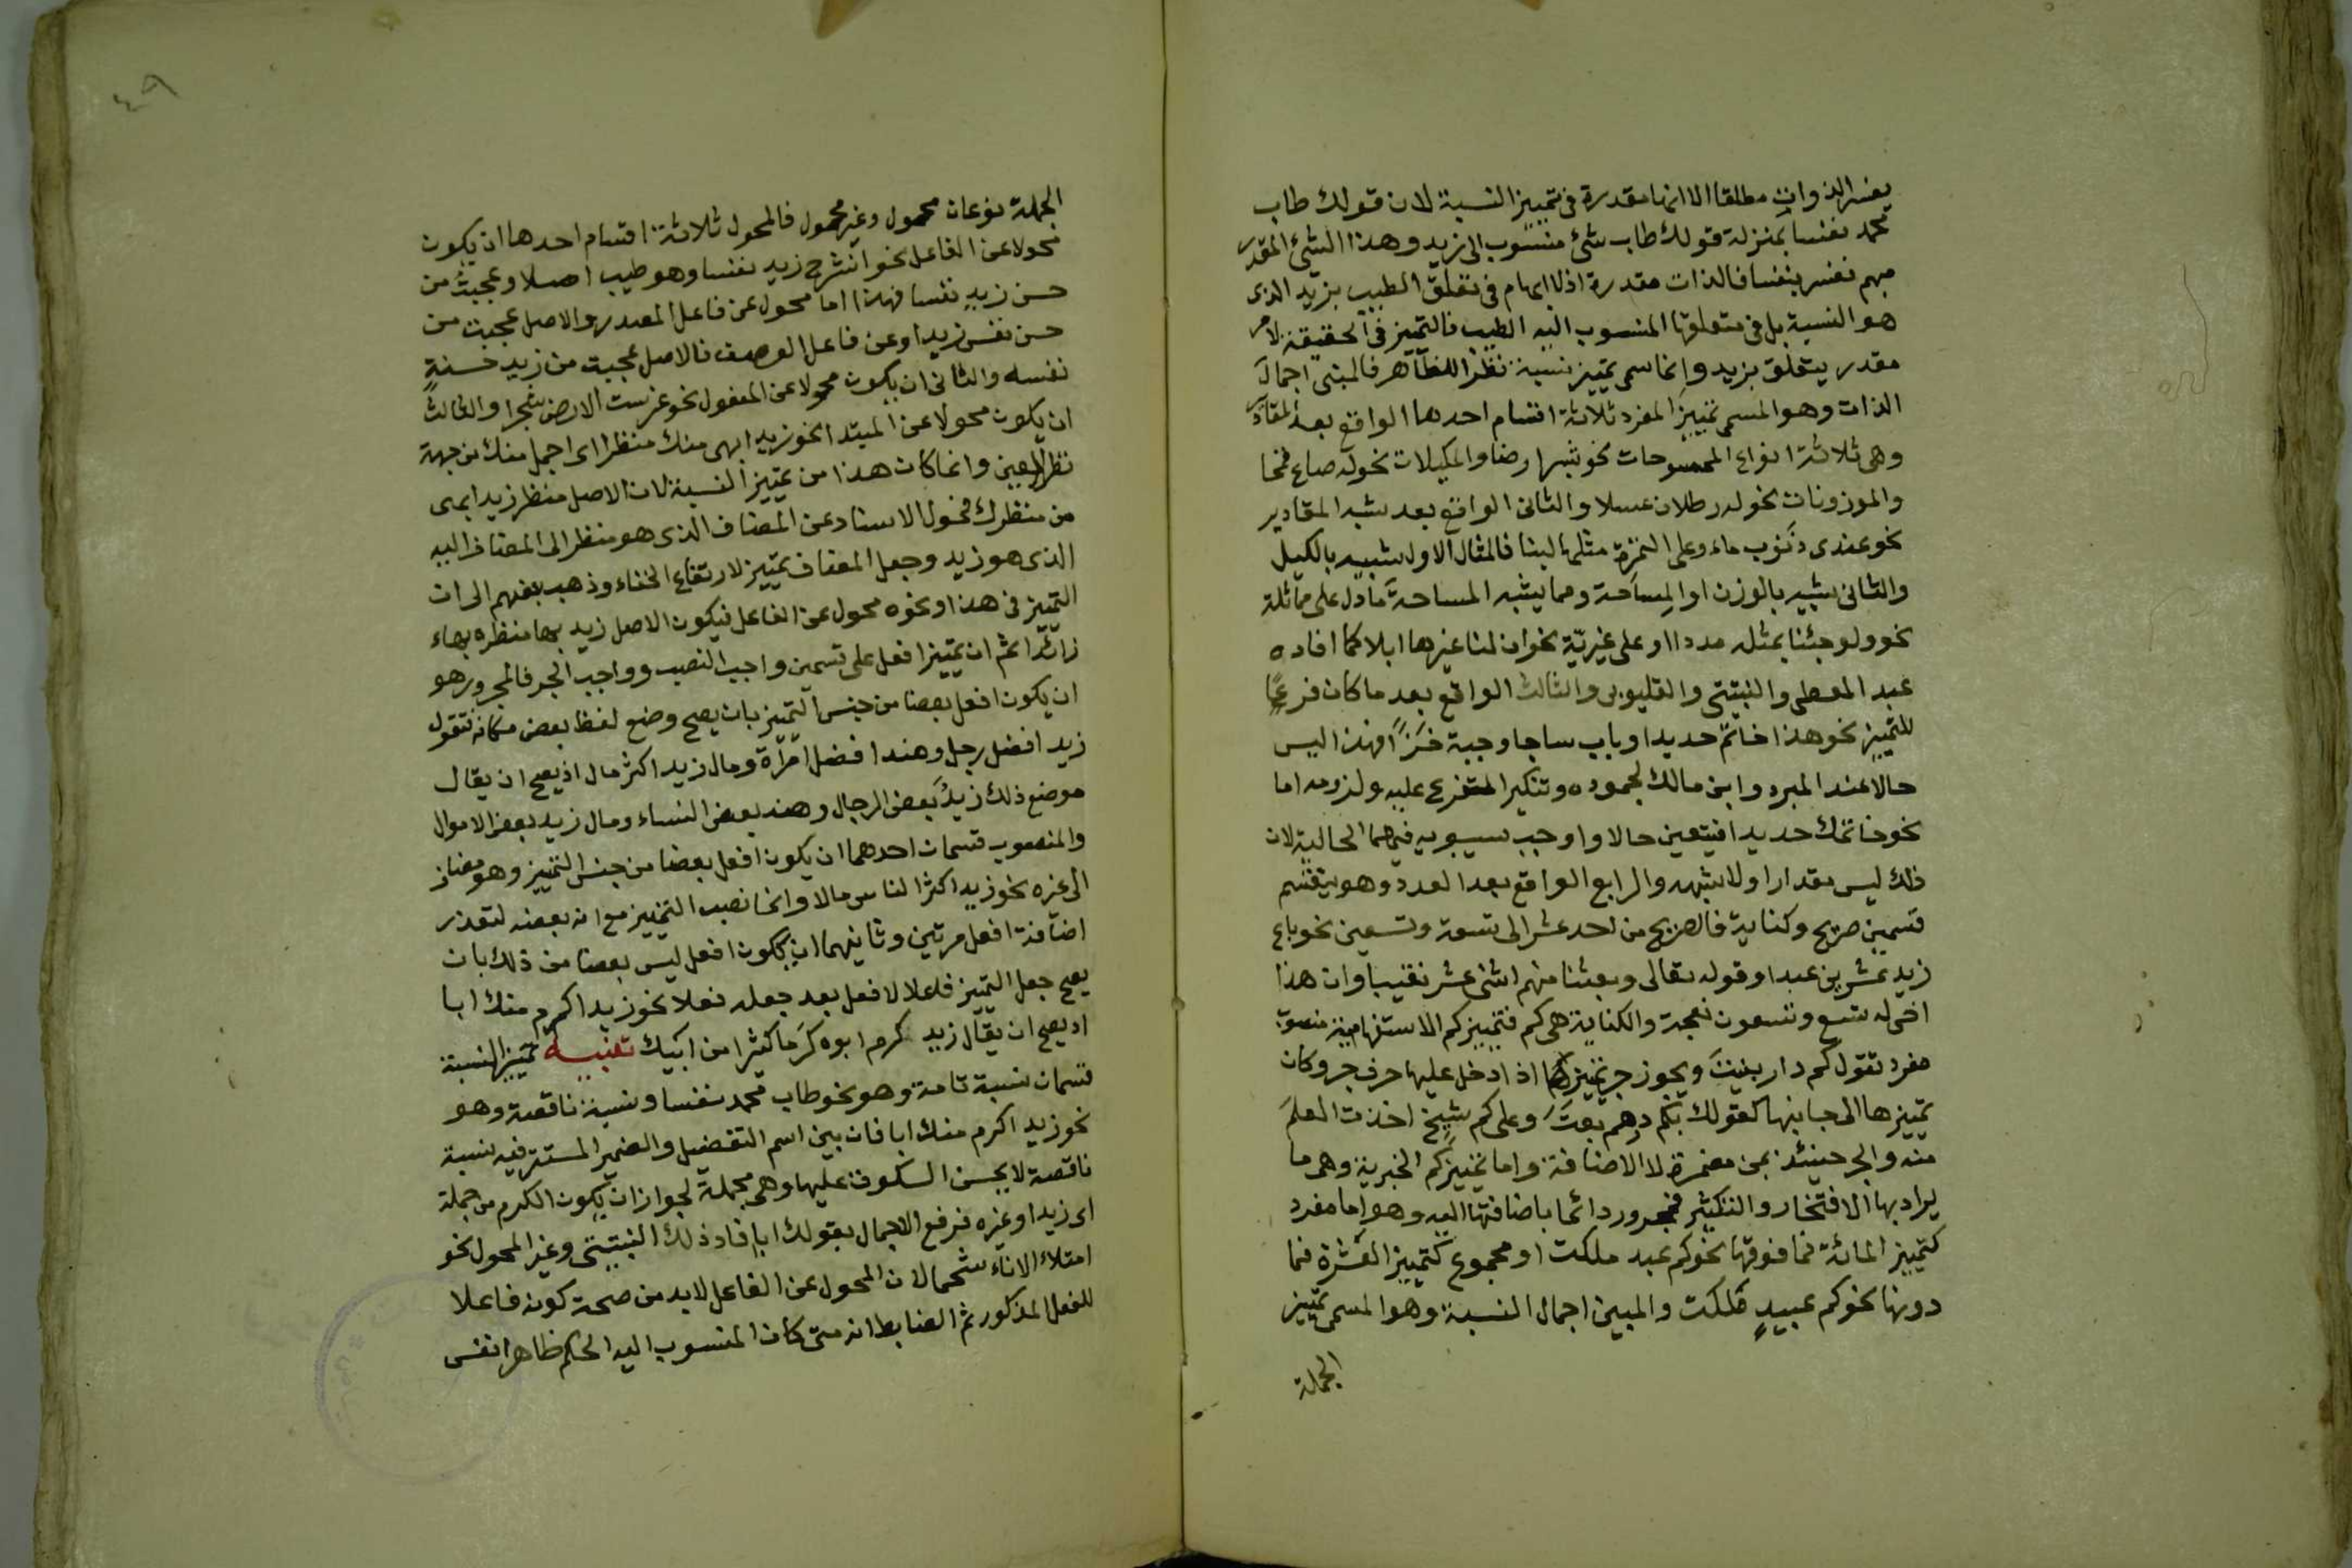 يفسر الذوات مطلقا الا انها مقدرة فى تمييز النسبة لان قولك طاب
محمد نفسا بمنزلة قولك طاب شئ منسوب الى زيد وهذا الشئ المقدر
مبهم تفسر بنفسا فالذات مقدرة اذ لا ابهام فى تعلق الطيب بزيد الذى
هو النسبة بل فى متعلقها المنسوب اليه الطيب فالتمييز فى الحقيقة لامر
مقدر يتعلق بزيد وانما سمى تمييز نسبة نظرا للظاهر فالمبنى اجمال
الذات وهو المسمى تمييز المفرد ثلاثة اقسام احدها الواقع بعد المقادير
وهى ثلاثة انواع الممسوحات نحو شبر ارضا والمكيلات نحو له صاع قمحا
والموزونات نحو له رطلان عسلا والثانى الواقع بعد شبه المقادير
نحو عندى ذنوب ماء وعلى التمرة مثلها لبنا فالمثال الاول شبيه بالكيل
والثانى شبيه بالوزن او المساحة ومما يشبه المساحة ما دل على مماثلة
نحو ولو جئنا بمثله مددا او على غيرية نحو ان لنا غيرها ابلا كما افاده
عبد المعطى والنبتيتى والقليوبى والثالث الواقع بعد ما كان فرعا
للتمييز نحو هذا خاتم حديدا وباب ساجا وجبة خزا فهذا ليس
حالا عند المبرد وابن مالك لجموده وتنكير المتفرع عليه ولزومه اما
نحو خاتمك حديدا فيتعين حالا واوجب سيبويه فيهما الحالية لان
ذلك ليس مقدارا ولا شبهه والرابع الواقع بعد العدد وهو ينقسم
قسمين صريح وكناية فالصريح من احد عشر الى تسعة وتسعين نحو باع
زيد عشرين عبدا وقوله تعالى وبعثنا منهم اثنى عشر نقيبا وان هذا
اخى له تسع وتسعون نعجة والكناية هى كم فتمييز كم الاستفهامية منصوب
مفرد تقول كم دار بنيت ويجوز جر تمييزها اذا دخل عليها حرف جر وكان
تمييزها الى جانبها كقولك بكم درهم بعت وعلى كم شيخ اخذت العلم
منه والجر حينئذ بمن مضمرة لا الاضافة واما تمييز كم الخبرية وهى ما
يراد بها الافتخار والتكثير فمجرور دائما باضافتها اليه وهو اما مفرد
كتمييز المائة فما فوقها نحو كم عبد ملكت او مجموع كتمييز العشرة فما
دونها نحو كم عبيد ملكت والمبين اجمال النسبة وهو المسمى تمييز
الجملة
٤٩
الجملة نوعان محول وغير محول فالمحول ثلاثة اقسام احدها ان يكون
محولا عن الفاعل نحو انشرح زيد نفسا وهو طيب اصلا وعجبت من
حسن زيد نفسا فهذا اما محول عن فاعل المصدر والاصل عجبت من
حسن نفس زيد او عن فاعل الوصف فالاصل عجبت من زيد حسنة
نفسه والثانى ان يكون محولا عن المفعول نحو غرست الارض شجرا والثالث
ان يكون محولا عن المبتدا نحو زيد ابهى منك منظرا اى اجمل منك من جهة
نظر العين وانما كان هذا من تمييز النسبة لان الاصل منظر زيد ابهى
من منظرك فحول الاسناد عن المضاف الذى هو منظر الى المضاف اليه
الذى هو زيد وجعل المضاف تمييز لارتفاع الخفاء وذهب بعضهم الى ان
التمييز فى هذا ونحوه محول عن الفاعل فيكون الاصل زيد بها منظره بهاء
زائدا ثم ان تمييز افعل على قسمين واجب النصب وواجب الجر فالمجرور هو
ان يكون افعل بعضا من جنس التمييز بان يصح وضع لفظ بعض مكانه فتقول
زيد افضل رجل وهند افضل امرأة ومال زيد اكثر مال اذ يصح ان يقال
موضع ذلك زيد بعض الرجال وهند بعض النساء ومال زيد بعض الاموال
والمنصوب قسمان احدهما ان يكون افعل بعضا من جنس التمييز وهو مضاف
الى غيره نحو زيد اكثر الناس مالا وانما نصب التمييز مع انه بعضه لتعذر
اضافة افعل مرتين وثانيهما ان يكون افعل ليس بعضا من ذلك بان
يصح جعل التمييز فاعلا لافعل بعد جعله فعلا نحو زيد اكرم منك ابا
اذ يصح ان يقال زيد كرم ابوه كرما كثيرا من ابيك تنبيه تمييز النسبة
قسمان نسبة تامة وهو نحو طاب محمد نفسا ونسبة ناقصة وهو
نحو زيد اكرم منك ابا فان بين اسم التفضيل والضمير المستتر فيه نسبة
ناقصة لا يحسن السكوت عليها وهى مجملة لجواز ان يكون الكرم من جملة
اى زيد او غيره فرفع الاجمال بقولك ابا افاد ذلك النبتيتى وغير المحول نحو
امتلاء الاناء شحما لان المحول عن الفاعل لابد من صحة كونه فاعلا
للفعل المذكور ثم الضابط انه متى كان المنسوب اليه الحكم ظاهرا نفس